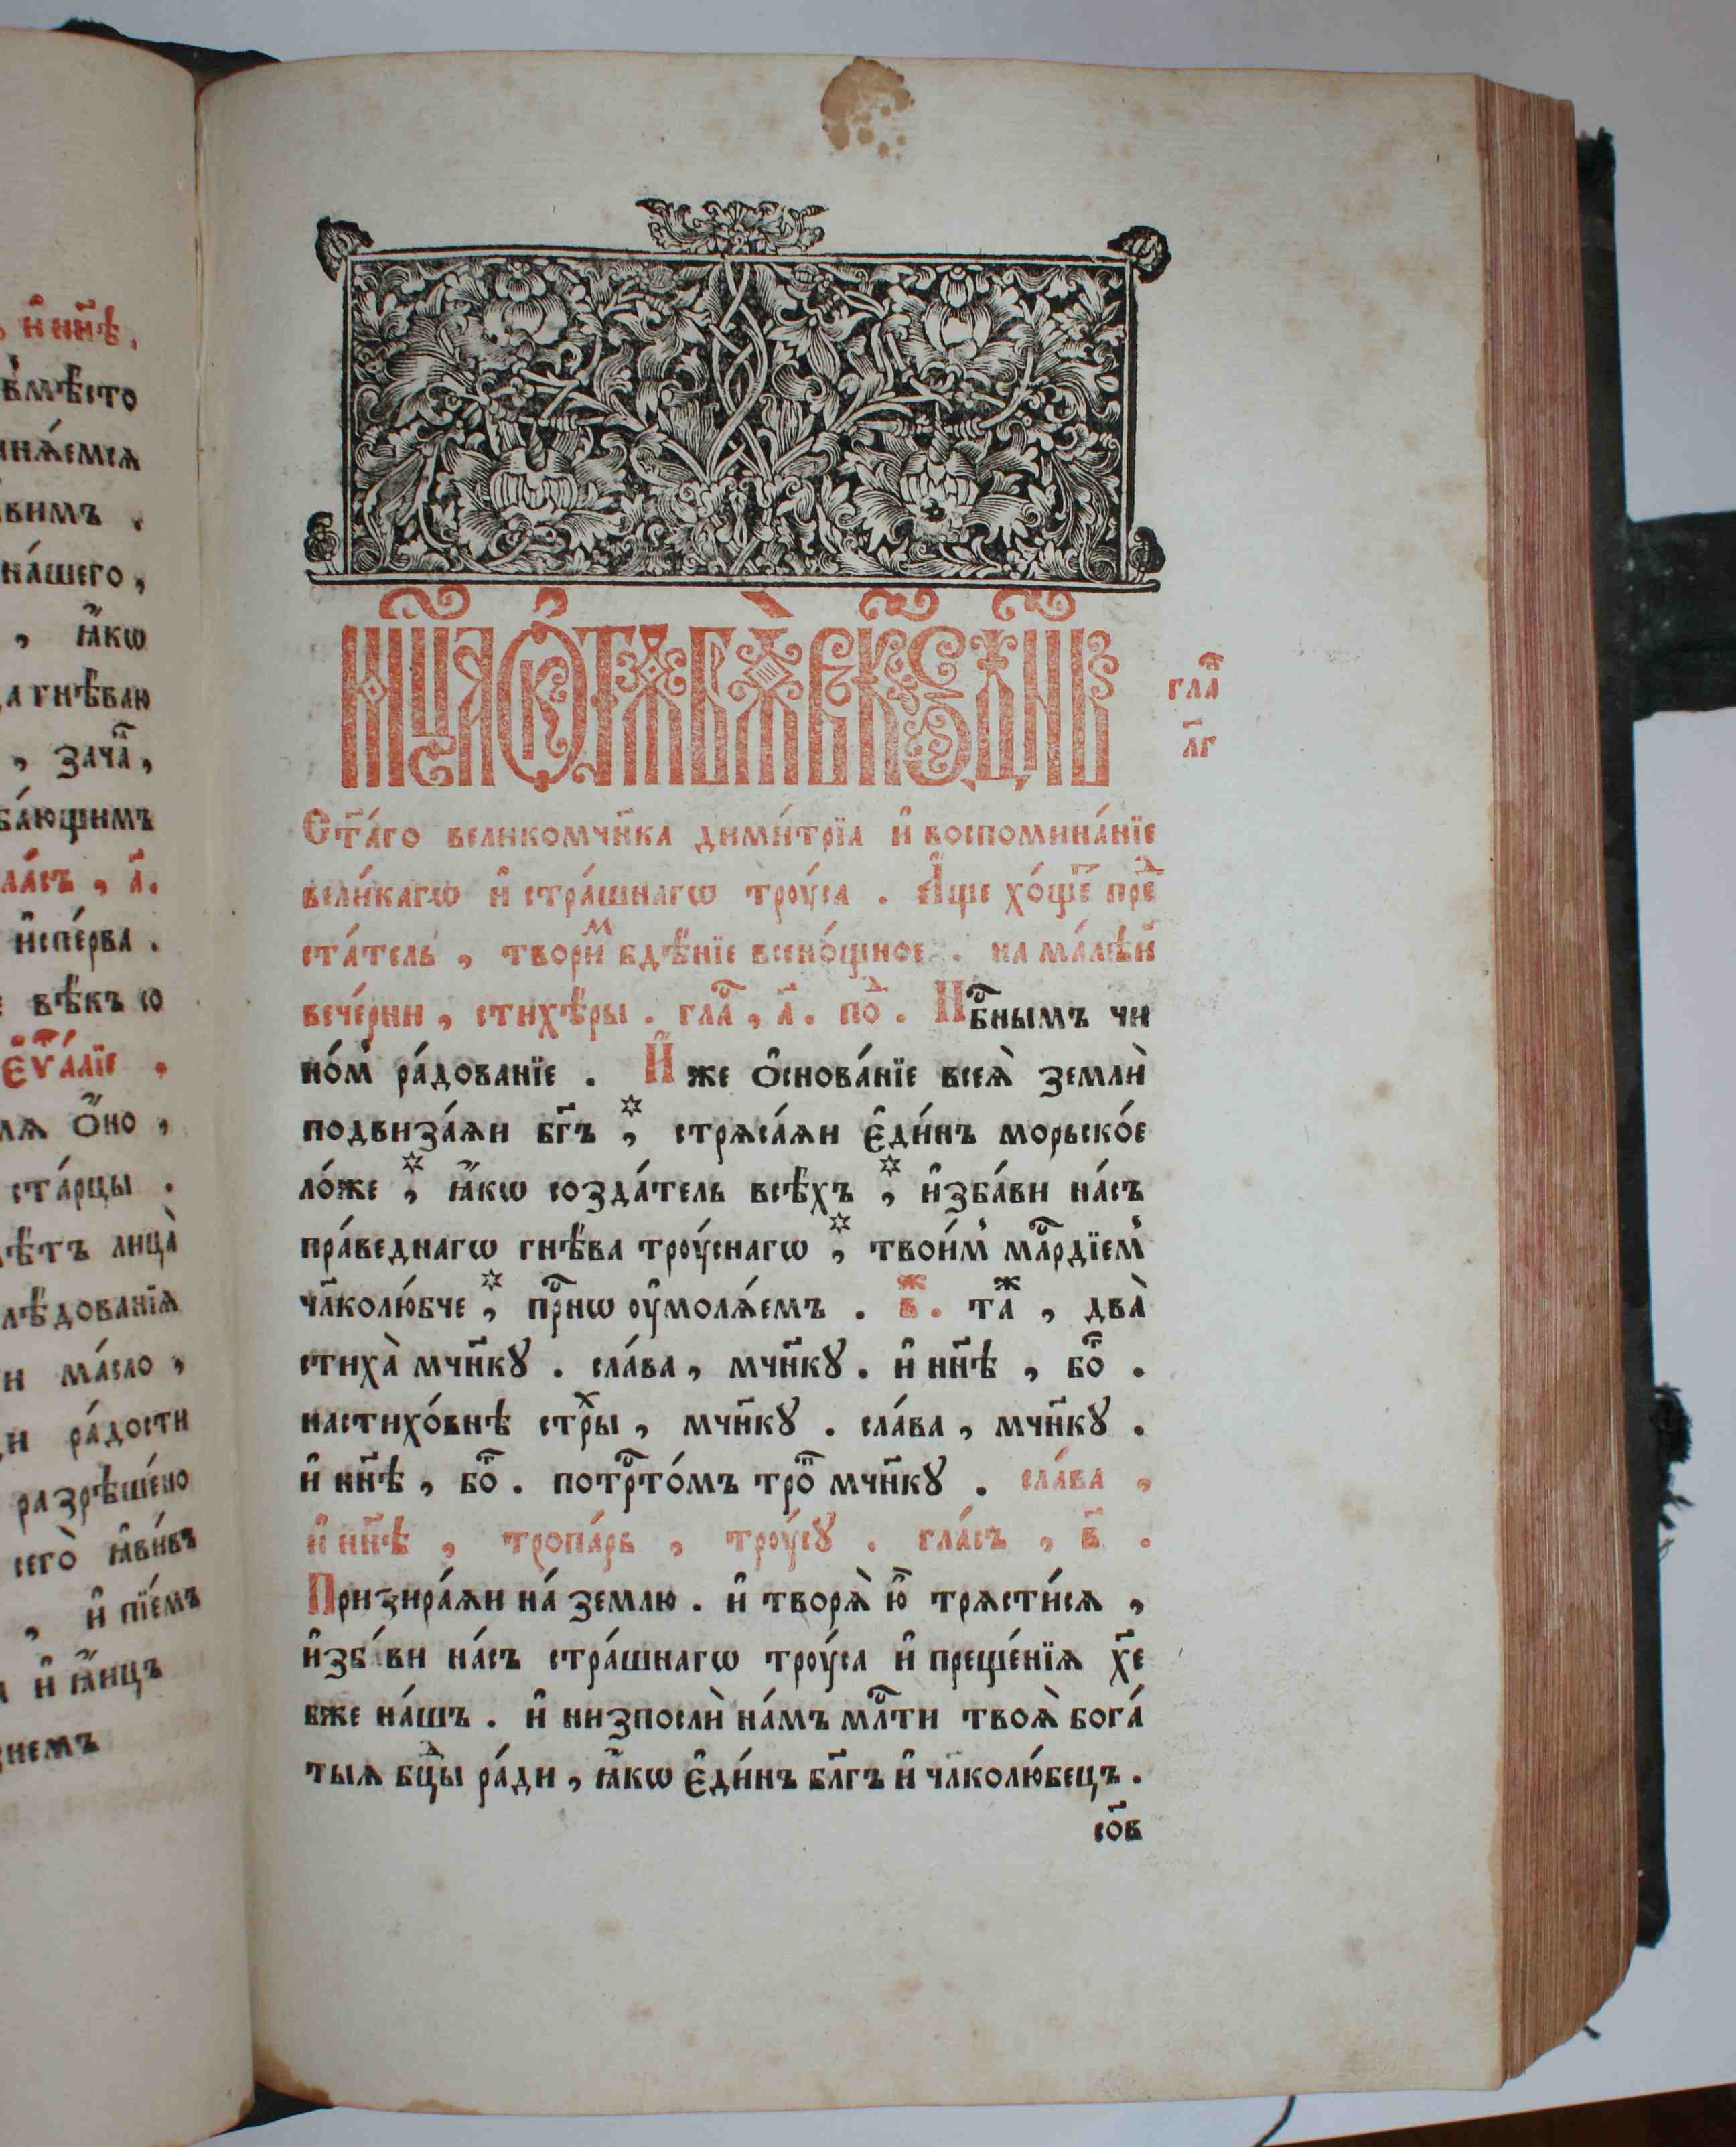 и҆ нн҃ѣ,
вмѣсто
нашего,
, ꙗ҆́кѡ
гнѣваю
, зача́,
и҆спе́рва .
вѣкъ со
є҆ѵа́лїе ,
о҆́но ,
ста́рцы .
лица̀
ма́сло ,
ра́дости
разрѣше́но
сегѡ̀ ꙗ҆ви́въ
, и҆ пїе́мъ
и҆ ꙗ҆и́цъ
мц҃а ѻ҆ктѧ́брѧ въ к҃ѕ дн҃ь
гла̑
л҃г
Ст҃а́го великомч҃нка дими́трїа и҆ воспомина́нїе
вели́кагѡ и҆ стра́шнагѡ трꙋ́са . А҆́ще хо́щеⷮ преⷣ
ста́тель , твориⷨ бдѣ́нїе всено́щное . на ма́лѣй
вече́рни , стихѣ́ры . глаⷭ , а҃ . поⷣ . Нбⷭ҇нымъ чи
но́м̾ ра́дованїе . И҆́же ѻ҆снова́нїе всеѧ̀ землѝ
подвиза́ѧи бг҃ъ , стрѧса́ѧи є҆ди́нъ морьско́е
ло́же , ꙗ҆́кѡ созда́тель всѣ́хъ , и҆зба́ви на́съ
пра́веднагѡ гнѣ́ва трꙋ́снагѡ , твои́м̾ млⷭ҇рдїем̾
чл҃колю́бче , прⷭ҇нѡ ᲂу҆молѧ́емъ . вⷤ . таⷤ , два̀
стиха̀ мч҃нкꙋ . сла́ва , мч҃нкꙋ . и҆ нн҃ѣ , боⷢ .
настихо́внѣ стрⷯы , мч҃нкꙋ . сла́ва , мч҃нкꙋ .
и҆ нн҃ѣ , боⷢ . потрⷭ҇то́мъ троⷫ мч҃нкꙋ . сла́ва ,
и҆ нн҃ѣ , тропа́рь , трꙋ́сꙋ . гла́съ , в҃ .
Призира́ѧи на́ землю . и҆ творѧ̀ ю҆̀ трѧсти́сѧ ,
и҆зба́ви на́съ стра́шнагѡ трꙋ́са и҆ преще́нїѧ хе҃
бже на́шъ . и҆ низпослѝ на́мъ млⷭ҇ти твоѧ̀ бога́
тыѧ бцⷣы ра́ди , ꙗ҆́кѡ є҆ди́нъ бл҃гъ и҆ чл҃колю́бецъ .
со҃в